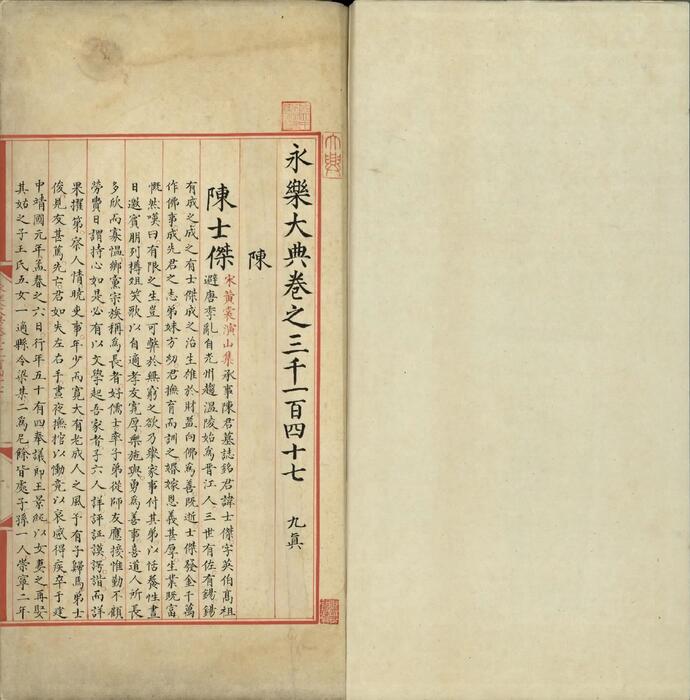 永樂大典卷之三千一百四十七 九真
陳
陳士傑 宋黃裳演山集承事陳君墓誌銘君諱士傑字英伯髙祖
避唐季亂自光州趨温陵始爲晉江人三世有佐有錫錫
有成之成之有士傑成之治生雄於財益向佛爲善既逝士傑發金千萬
作佛事成先君之志弟妹方幼君撫育而訓之婚嫁恩義甚厚生業既富
慨然嘆曰有限之生豈可弊於無窮之欲乃舉家事付其弟以恬養性晝
日邀賔朋列摶俎笑歌以自適孝友寛厚樂施與勇爲善事喜道人所長
多欣而寡愠鄉黨宗族稱爲長者好儒士率子弟從師友應接惟勤不顧
勞費日謂持心如是必有以文學起吾家者子六人詳評証謨諤諧而詳
果擢第察人情曉吏事年少而寛大有老成人之風予有子歸焉弟士
俊見友甚篤先亡君如失左右手晝夜撫棺以慟竟以哀感得疾卒于建
中靖國元年孟春之六日行年五十有四奉議郎王景純以女妻之再娶
其姑之子王氏五女一適縣令梁某二爲尼餘皆處子孫一人崇寧二年